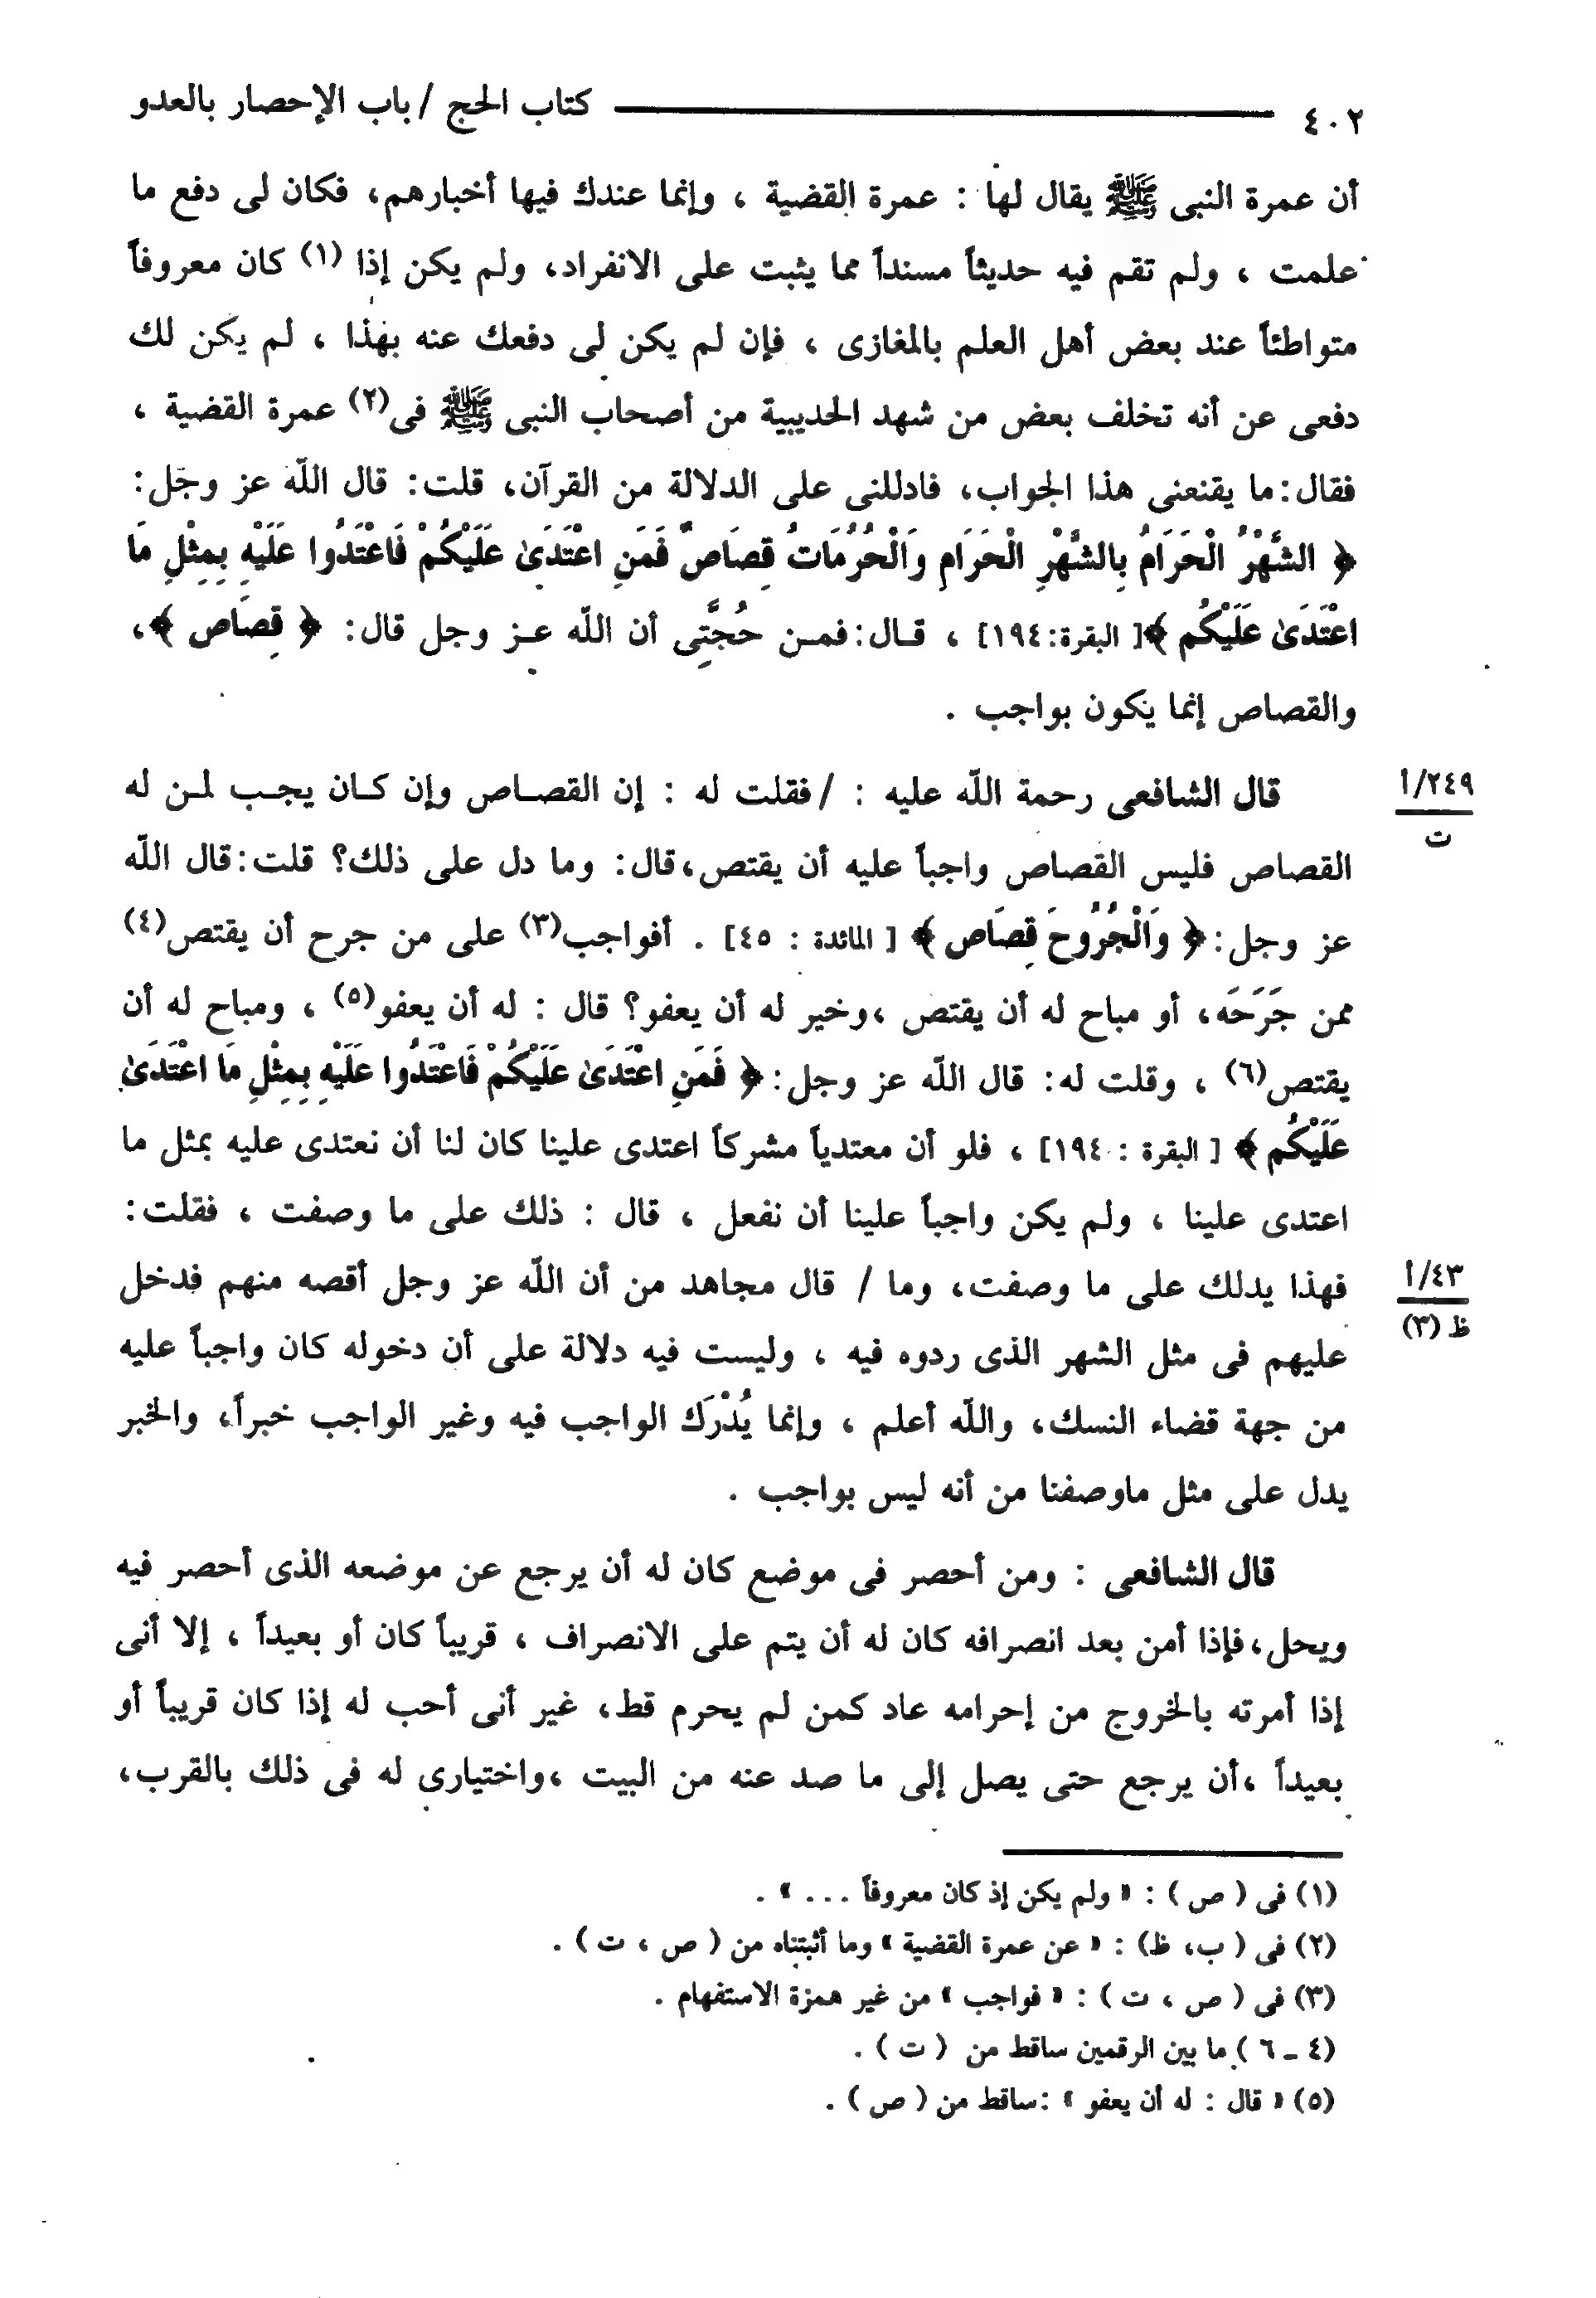 ٤٠٢ كتاب الحج / باب الإحصار بالعدو
أن عمرة النبى ﷺ يقال لها : عمرة القضية ، وإنما عندك فيها أخبارهم، فكان لى دفع ما
علمت ، ولم تقم فيه حديثاً مسنداً مما يثبت على الانفراد، ولم يكن إذا (١) كان معروفاً
متواطئاً عند بعض أهل العلم بالمغازى ، فإن لم يكن لى دفعك عنه بهذا ، لم يكن لك
دفعى عن أنه تخلف بعض من شهد الحديبية من أصحاب النبى ﷺ فى(٢) عمرة القضية ،
فقال: ما يقنعنى هذا الجواب، فادللنى على الدلالة من القرآن، قلت: قال اللّه عز وجل:
﴿ الشَّهْرُ الْحَرَامُ بِالشَّهْرِ الْحَرَامِ وَالْحُرُمَاتُ قِصَاصٌ فَمَنِ اعْتَدَىٰ عَلَيْكُمْ فَاعْتَدُوا عَلَيْهِ بِمِثْلِ مَا
اعْتَدَىٰ عَلَيْكُم ﴾[ البقرة: ١٩٤] ، قـال: فمـن حُجَّتِى أن اللّه عـز وجل قال: ﴿ قِصَاص ﴾،
والقصاص إنما يكون بواجب .
قال الشافعى رحمة اللّه عليه : / فقلت له : إن القصـاص وإن كـان يجـب لمـن له
٢٤٩/أ
ت
القصاص فليس القصاص واجباً عليه أن يقتص، قال: وما دل على ذلك؟ قلت: قال اللّه
عز وجل: ﴿ وَالْجُرُوحَ قِصَاص ﴾ [ المائدة : ٤٥] . أفواجب(٣) على من جرح أن يقتص(٤)
ممن جَرَحَه، أو مباح له أن يقتص ،وخير له أن يعفو؟ قال : له أن يعفو(٥) ، ومباح له أن
يقتص(٦) ، وقلت له: قال اللّه عز وجل: ﴿ فَمَنِ اعْتَدَىٰ عَلَيْكُمْ فَاعْتَدُوا عَلَيْهِ بِمِثْلِ مَا اعْتَدَىٰ
عَلَيْكُم ﴾ [ البقرة : ١٩٤] ، فلو أن معتدياً مشركاً اعتدى علينا كان لنا أن نعتدى عليه بمثل ما
اعتدى علينا ، ولم يكن واجباً علينا أن نفعل ، قال : ذلك على ما وصفت ، فقلت:
فهذا يدلك على ما وصفت، وما / قال مجاهد من أن اللّه عز وجل أقصه منهم فدخل
٤٣/أ
ظ (٣)
عليهم فى مثل الشهر الذى ردوه فيه ، وليست فيه دلالة على أن دخوله كان واجباً عليه
من جهة قضاء النسك، واللّه أعلم ، وإنما يُدْرَك الواجب فيه وغير الواجب خبراً، والخبر
يدل على مثل ماوصفنا من أنه ليس بواجب .
قال الشافعى : ومن أحصر فى موضع كان له أن يرجع عن موضعه الذى أحصر فيه
ويحل، فإذا أمن بعد انصرافه كان له أن يتم على الانصراف ، قريباً كان أو بعيداً ، إلا أنى
إذا أمرته بالخروج من إحرامه عاد كمن لم يحرم قط، غير أنى أحب له إذا كان قريباً أو
بعيداً ،أن يرجع حتى يصل إلى ما صد عنه من البيت ،واختيارى له فى ذلك بالقرب،
(١) فى ( ص ) : « ولم يكن إذ كان معروفاً ... » .
(٢) فى ( ب، ظ) : « عن عمرة القضية » وما أثبتناه من ( ص ، ت ) .
(٣) فى ( ص ، ت ) : « فواجب » من غير همزة الاستفهام .
(٤ ـ ٦ ) ما بين الرقمين ساقط من ( ت ) .
(٥) « قال : له أن يعفو » :ساقط من ( ص ) .